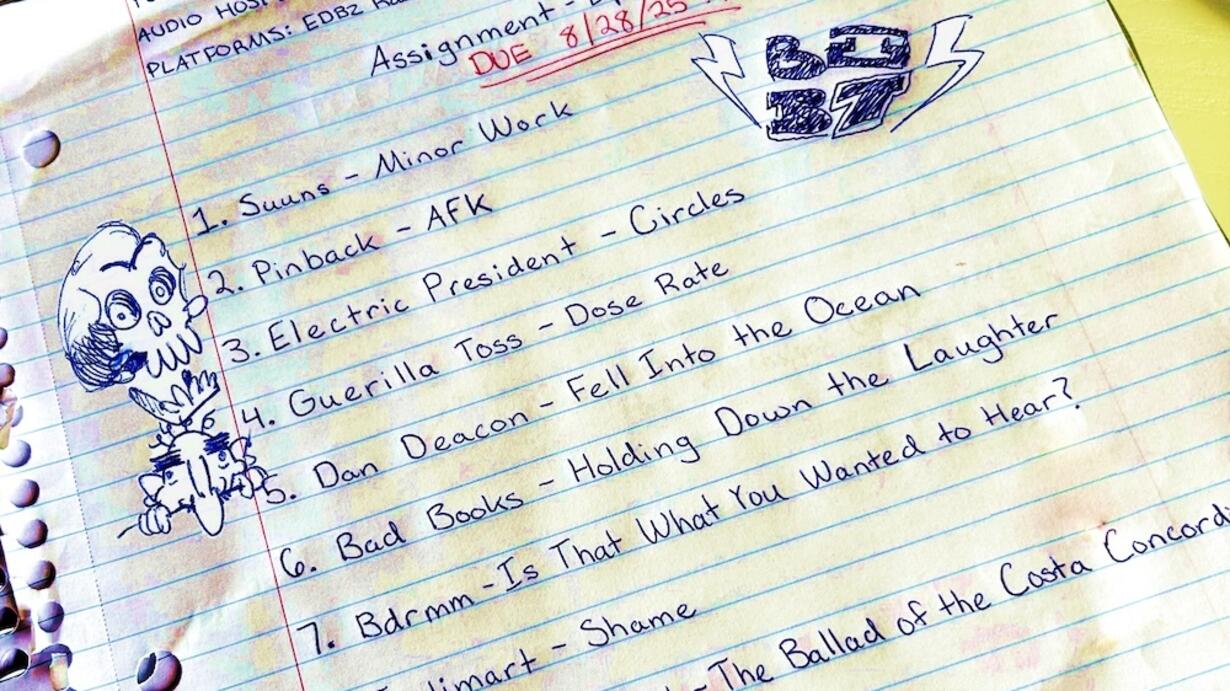 AUDIO
PLATFORMS: EDBZ
Assignment -
DUE 8/28/25
1. Suuns - Minor Work
2. Pinback - AFK
3. Electric President - Circles
4. Guerilla Toss - Dose Rate
5. Dan Deacon - Fell Into the Ocean
6. Bad Books - Holding Down the Laughter
7. Bdrmm - Is That What You Wanted to Hear?
- Shame
- The Ballad of the Costa